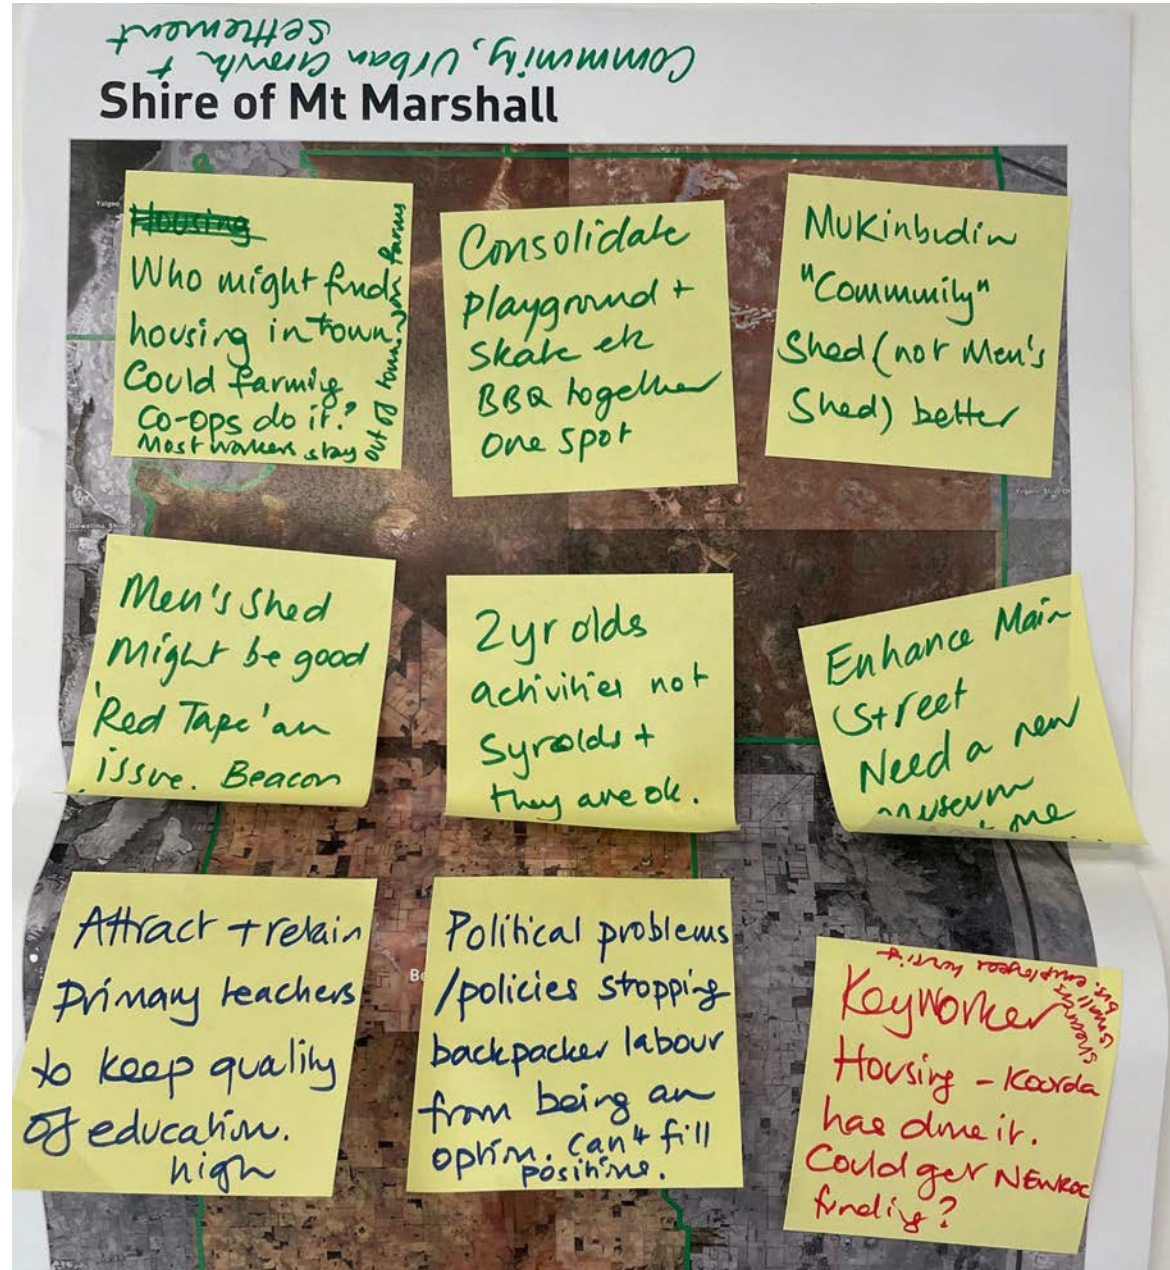 Community, Urban Growth +
Settlement
Shire of Mt Marshall
Housing
Who might fund
housing in town.
Could farming
Co-ops do it?
Most workers stay
out of town on farms
Consolidate
playground +
Skate etc
BBQ together
one spot
Mukinbudin
"Community"
Shed (not Men's
Shed) better
Men's Shed
Might be good
'Red Tape' an
issue. Beacon
2yr olds
activities not
5yrolds +
they are ok.
Enhance Main
Street
Need a new
museum
Attract + retain
primary teachers
to keep quality
of education.
high
Political problems
/policies stopping
backpacker labour
from being an
option. Can't fill
positions.
Keyworker
Housing - Koorda
has done it.
Could get NEWROC
funding?
Shearers
Small
bus. employees housing
Yalgoo